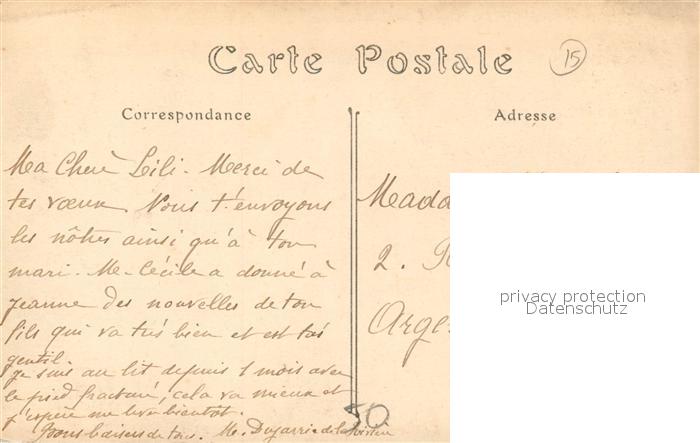 Carte Postale
15
Correspondance
Adresse
Ma Chère Lili. Merci de
tes vœux Nous t'envoyons
les nôtres ainsi qu'à ton
mari. Me Cécile a donné à
Jeanne des nouvelles de ton
fils qui va très bien et est très
gentil.
Je suis au lit depuis 1 mois avec
le pied fracturé, cela va mieux et
j'espère me lever bientôt.
Bons baisers de tous. M.
50
Mada
2. R
Arge
privacy protection
Datenschutz